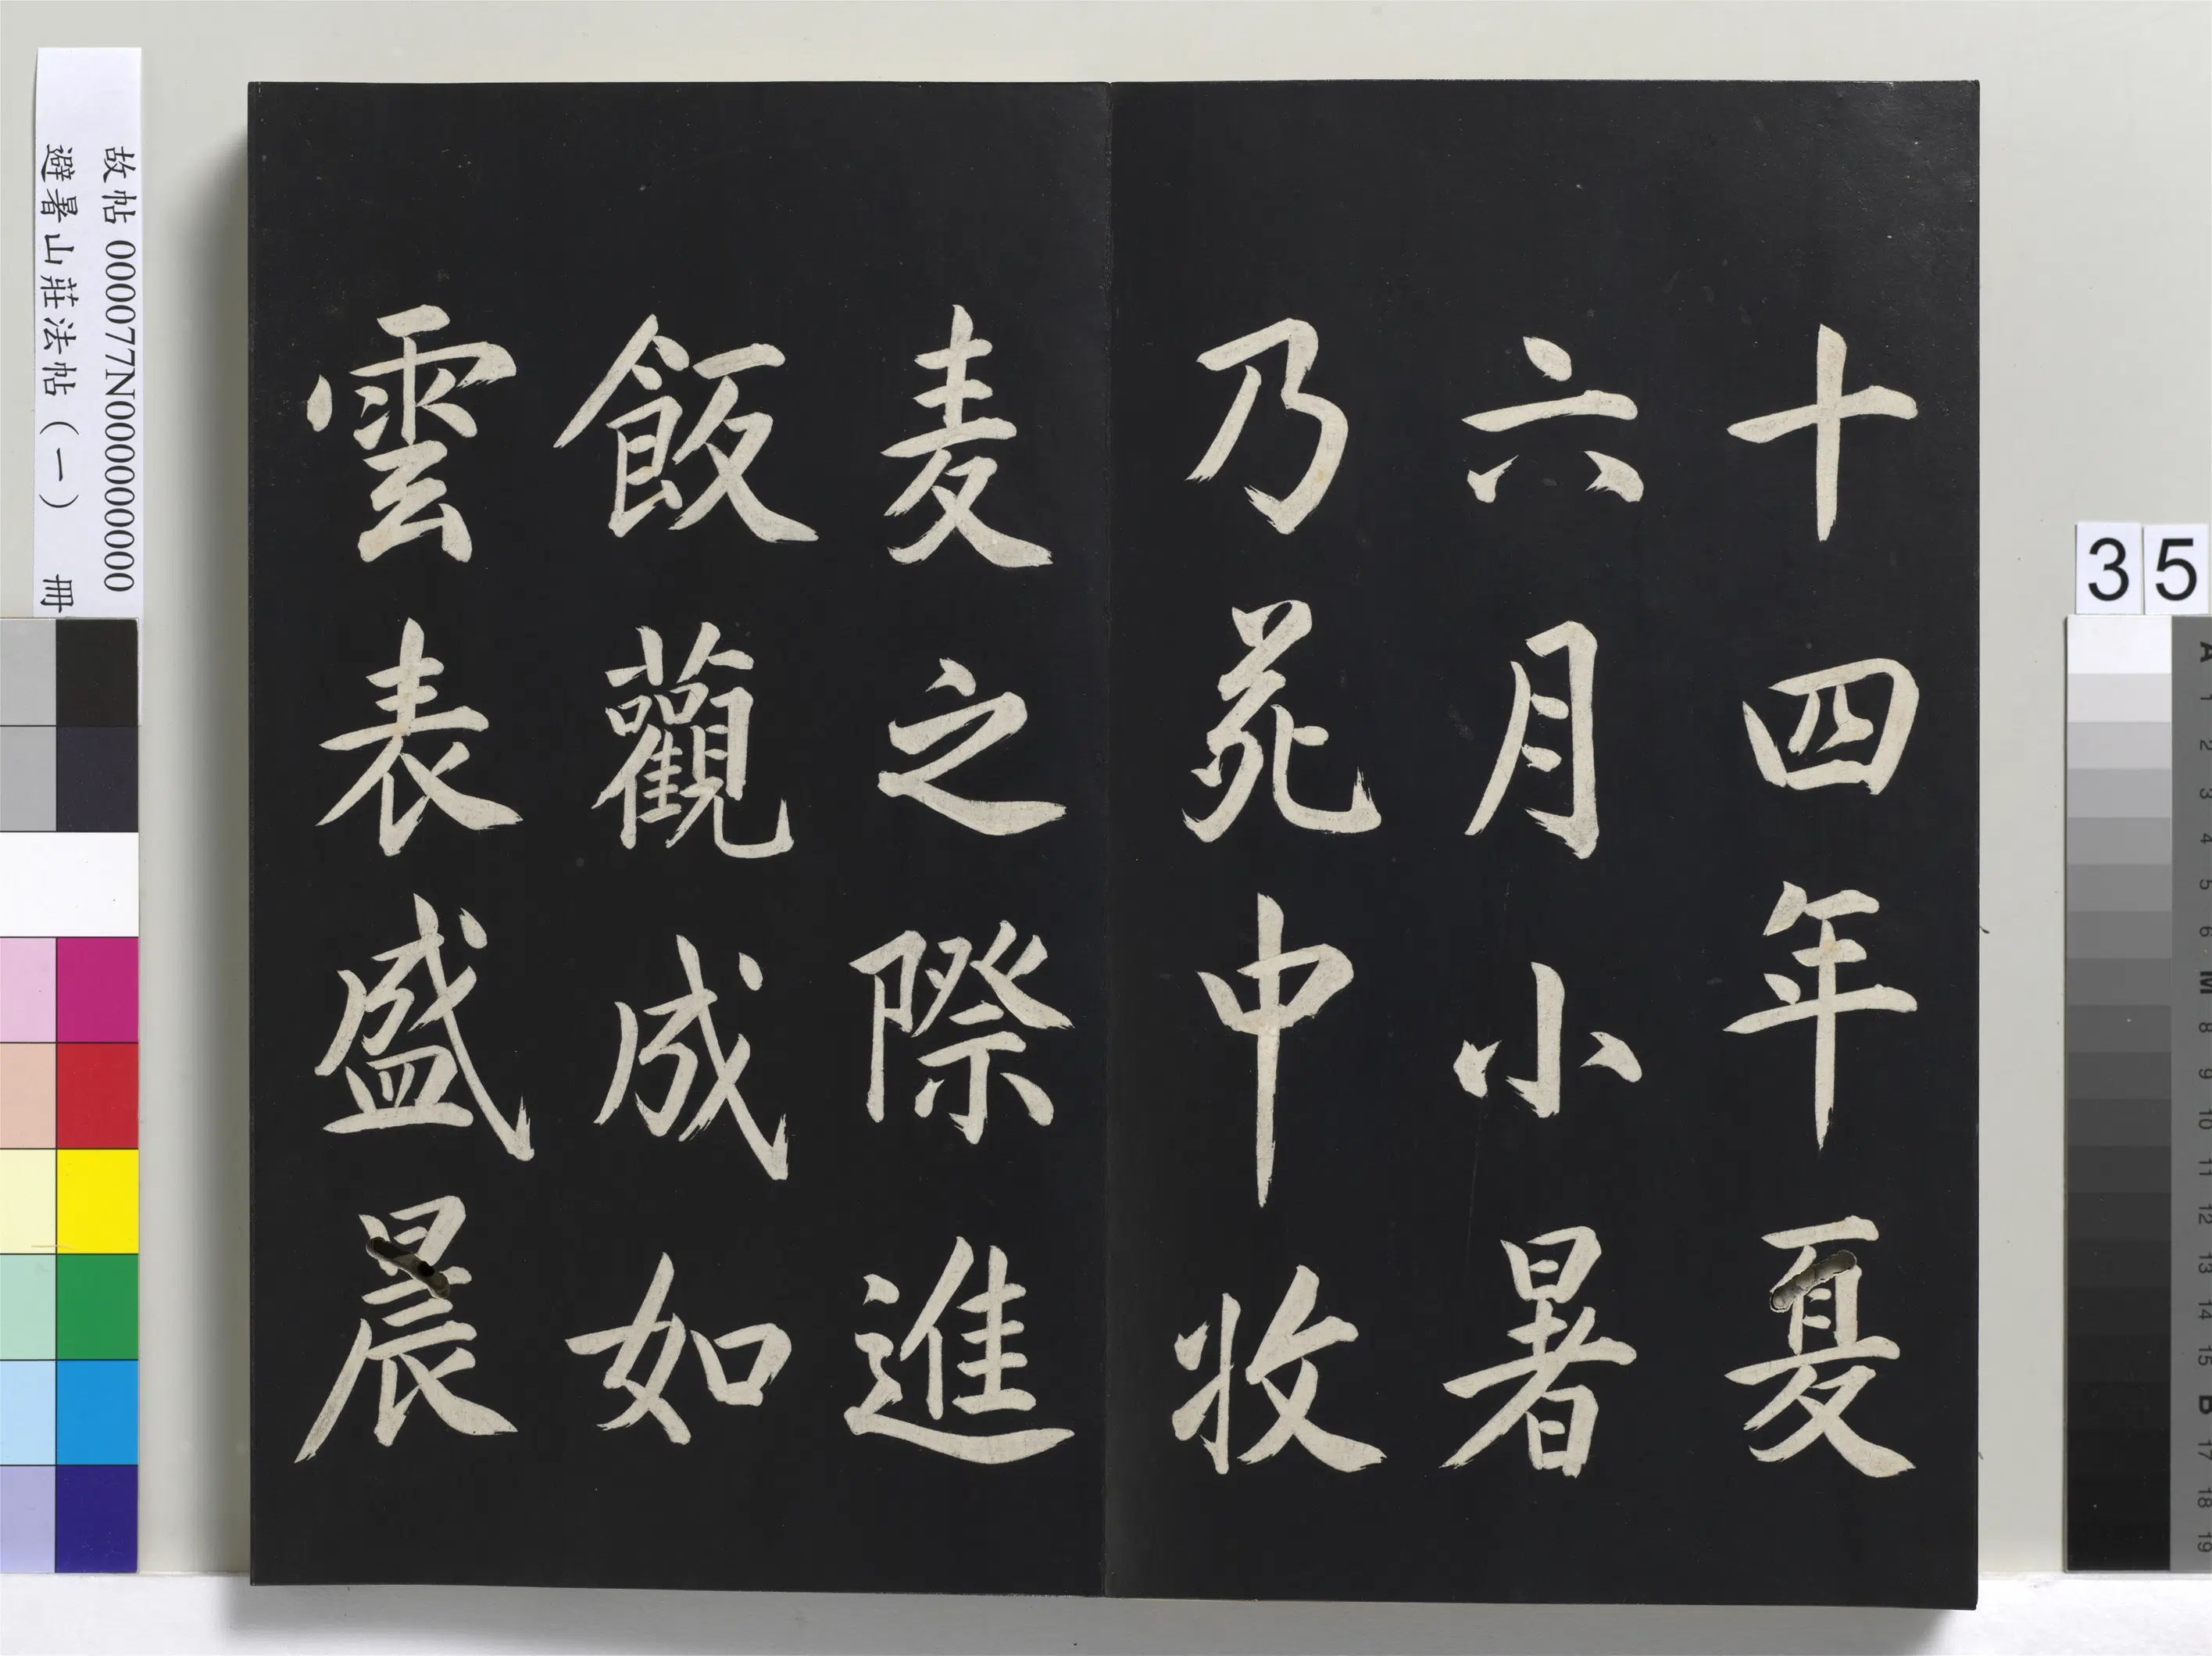 十四年夏
六月小暑
乃苑中收
麦之際進
飯觀成如
雲表盛晨
故帖 000077N000000000
避暑山莊法帖（一） 冊
35
A
1
2
3
4
5
6
M
8
9
10
11
12
13
14
15
B
17
18
19